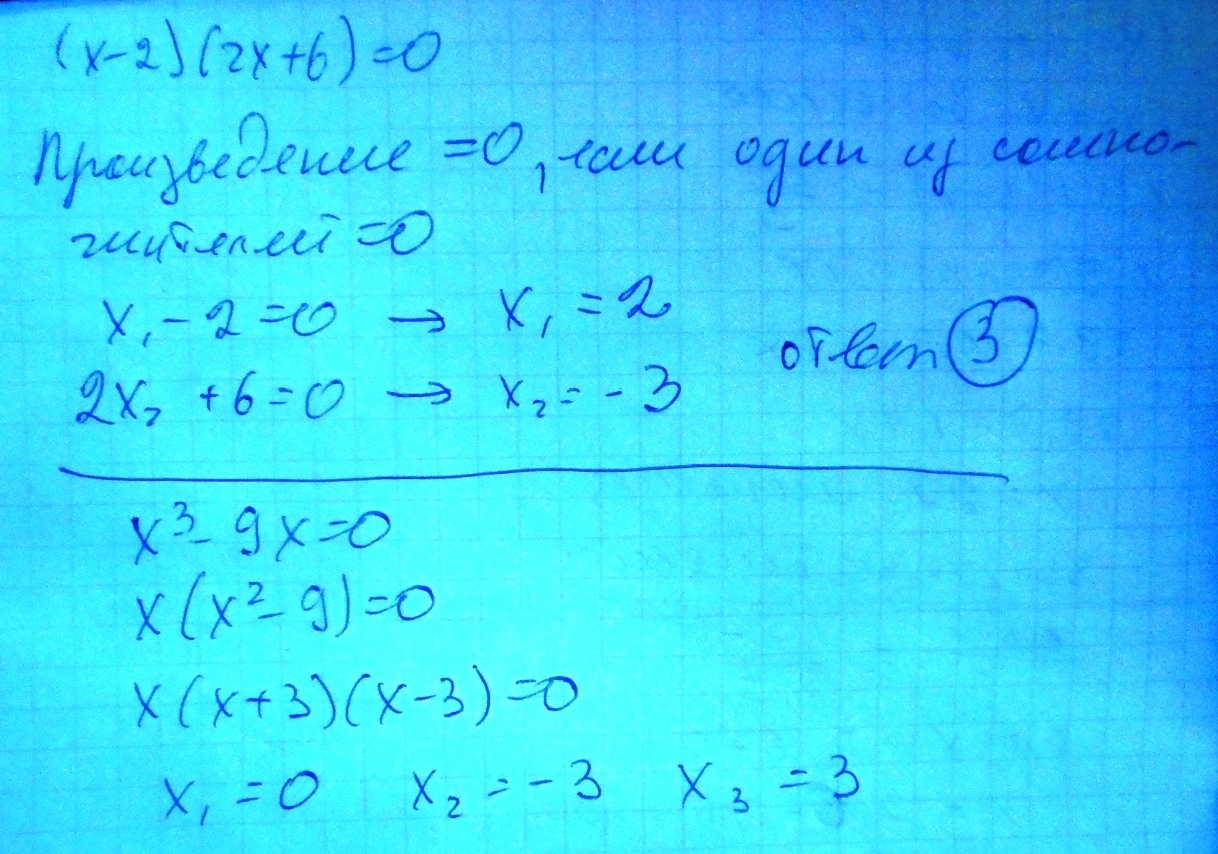 (x-2)(2x+6)=0
Произведение =0, если один из сомно-
жителей =0
x₁-2=0 → x₁=2
2x₂+6=0 → x₂=-3
ответ 3
x³-9x=0
x(x²-9)=0
x(x+3)(x-3)=0
x₁=0 x₂=-3 x₃=3